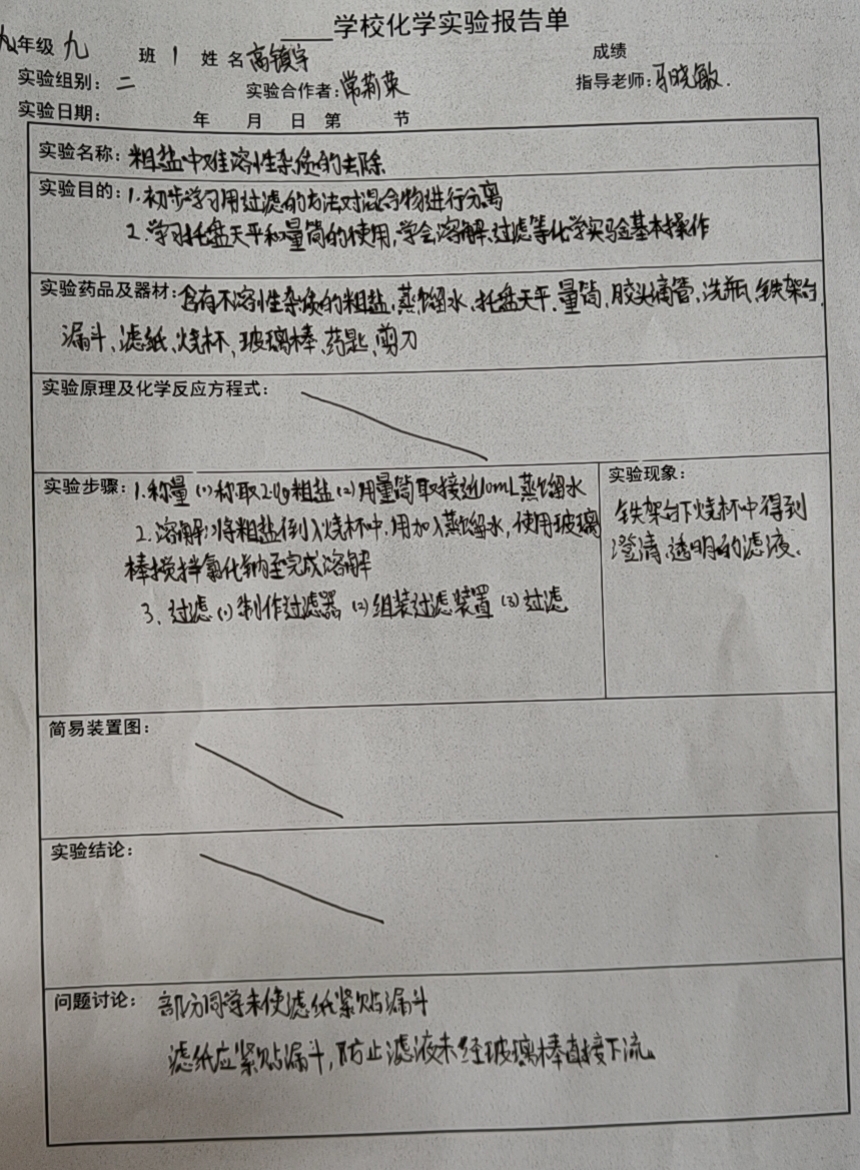 学校化学实验报告单
九年级 九 班 1 姓名 高镇宇 成绩
实验组别: 二 实验合作者: 常莉菜 指导老师: 马晓敏.
实验日期: 年 月 日 第 节
实验名称: 粗盐中难溶性杂质的去除
实验目的: 1.初步学习用过滤的方法对混合物进行分离
2.学习托盘天平和量筒的使用,学会溶解、过滤等化学实验基本操作
实验药品及器材: 含有不溶性杂质的粗盐、蒸馏水、托盘天平、量筒、胶头滴管、洗瓶、铁架台、
漏斗、滤纸、烧杯、玻璃棒、药匙、剪刀
实验原理及化学反应方程式:
实验步骤: 1.称量 (1)称取2.0g粗盐 (2)用量筒取接近10mL蒸馏水
2.溶解(1)将粗盐倒入烧杯中.用加入蒸馏水,使用玻璃
棒搅拌氯化钠至完成溶解
3.过滤 (1)制作过滤器 (2)组装过滤装置 (3)过滤
实验现象:
铁架台下烧杯中得到
澄清、透明的滤液.
简易装置图:
实验结论:
问题讨论: 部分同学未使滤纸紧贴漏斗
滤纸应紧贴漏斗,防止滤液未经玻璃棒直接下流。